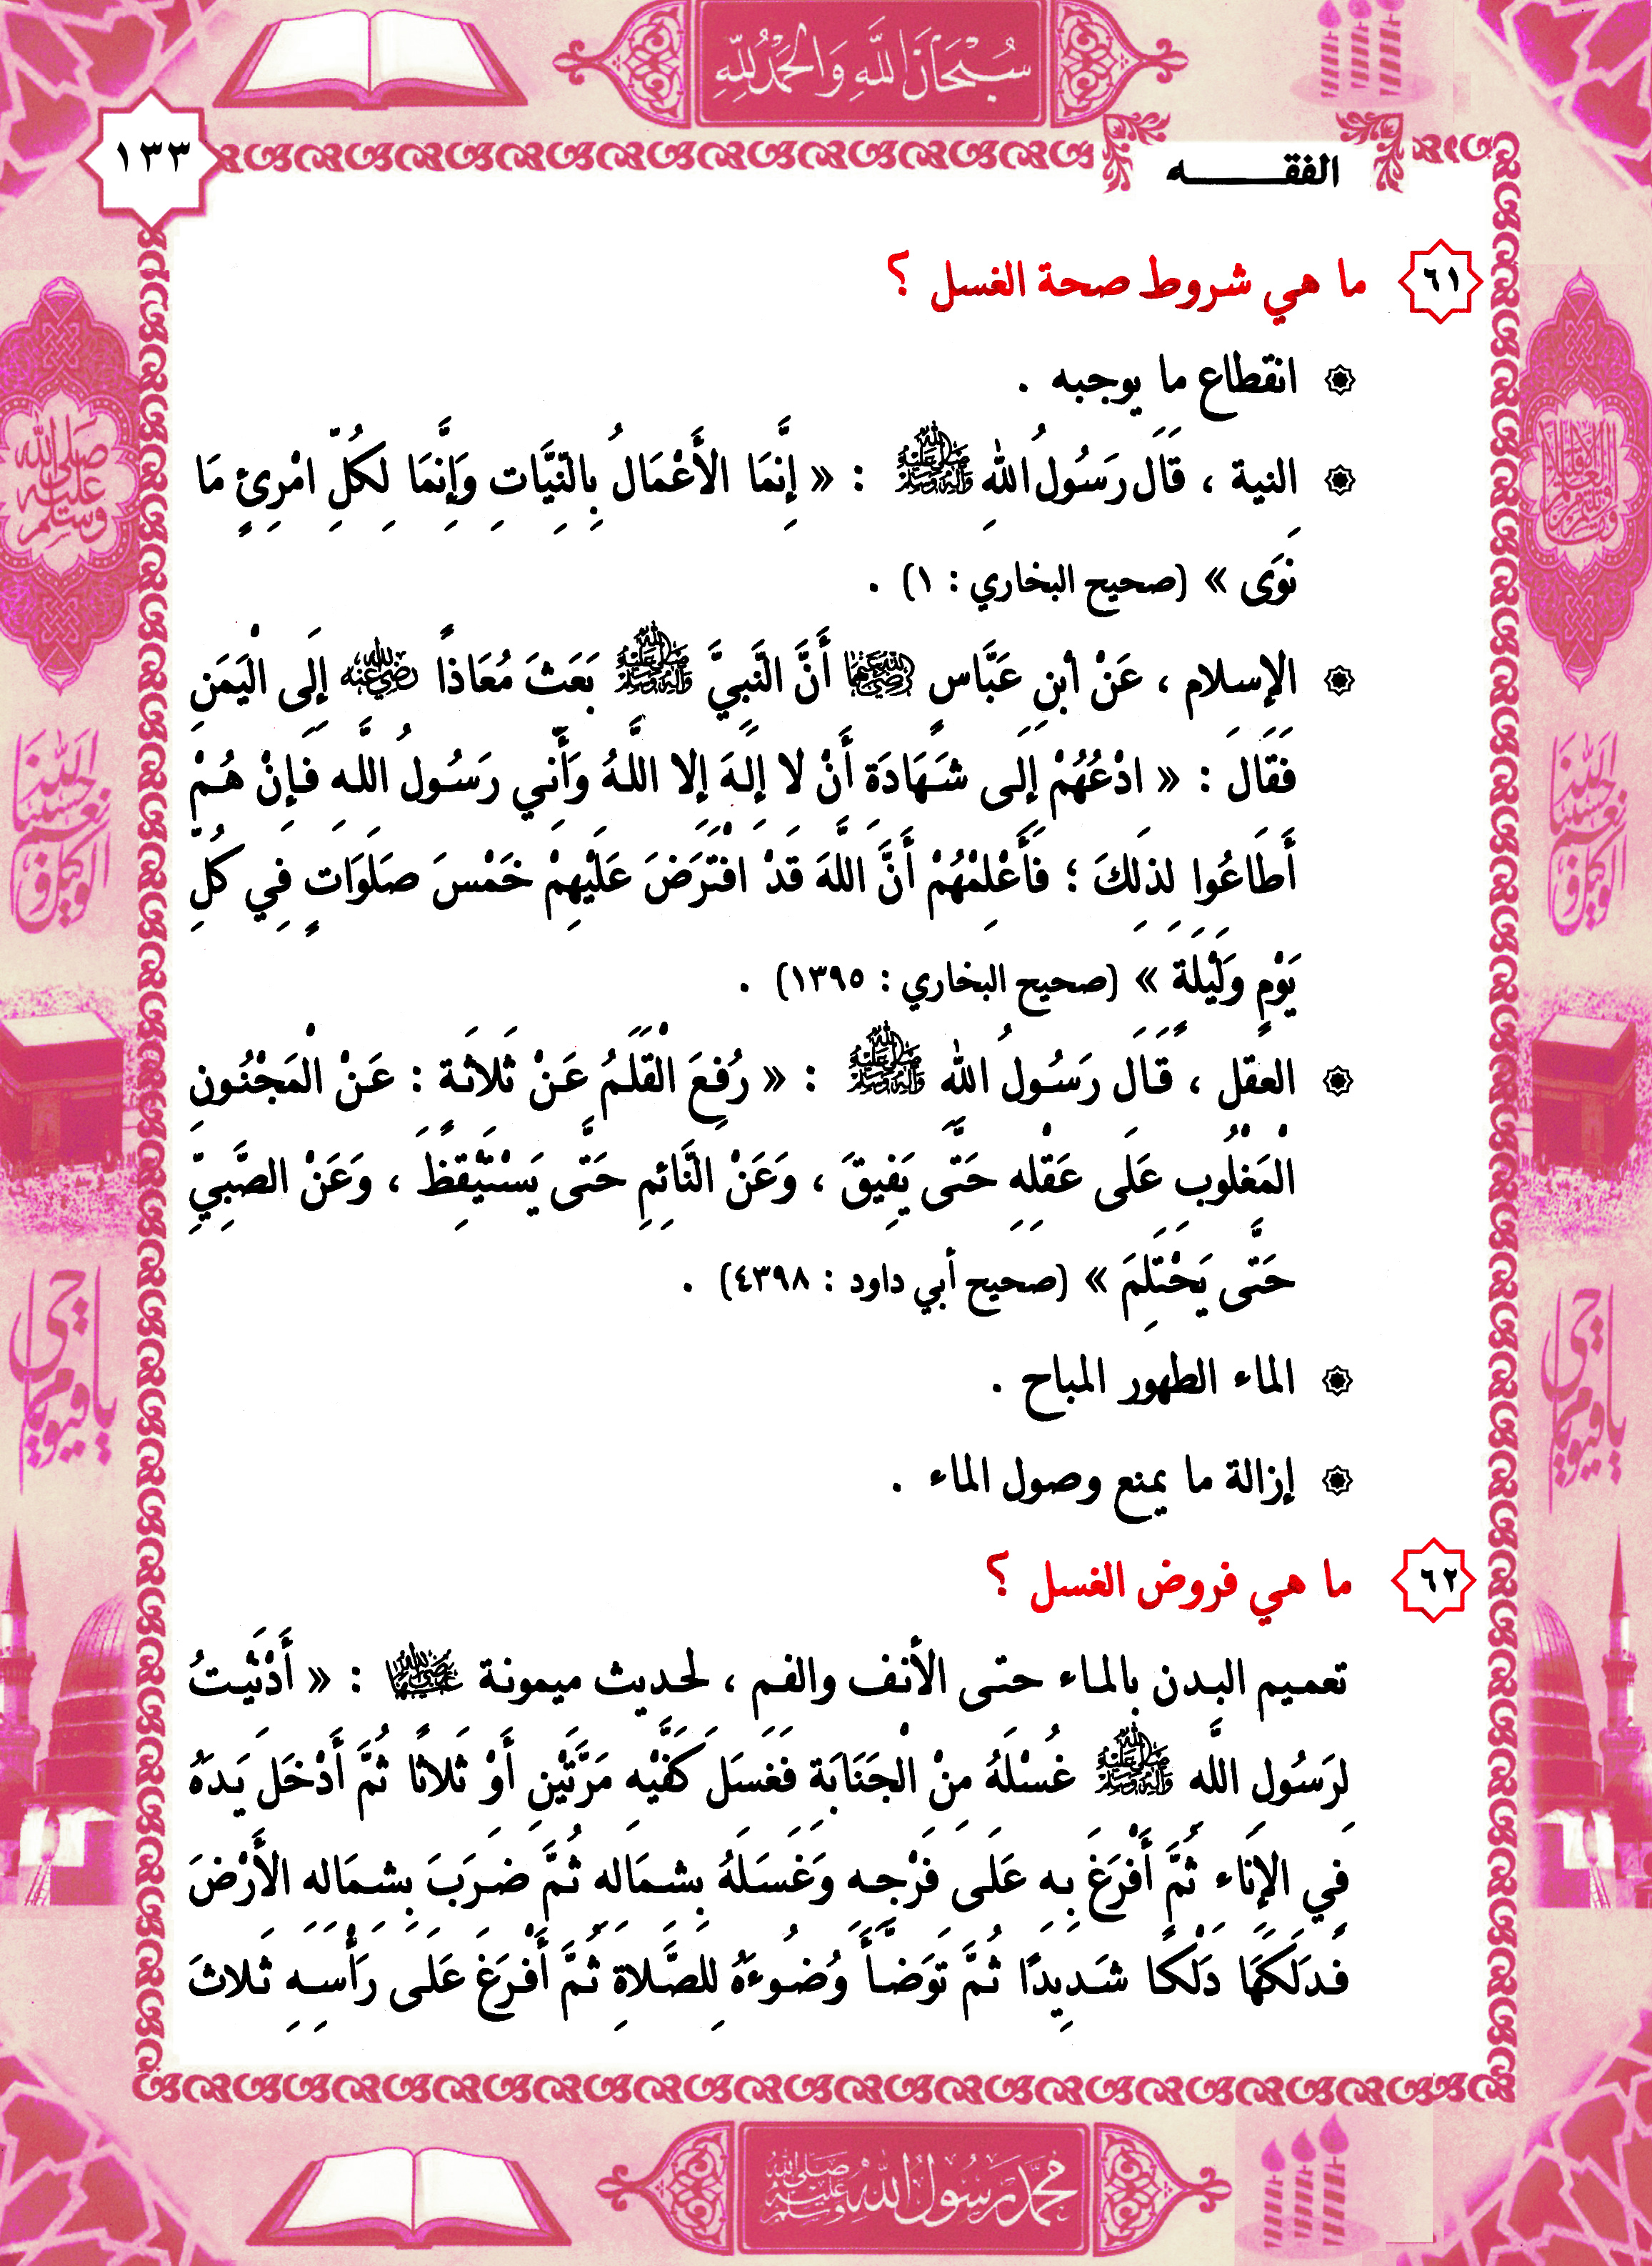 سُبْحَانَ اللَّهِ وَالْحَمْدُ لِلَّهِ
١٣٣
الفقـــــه
٦١ ما هي شروط صحة الغسل ؟
انقطاع ما يوجبه .
النية ، قَالَ رَسُولُ اللهِ ﷺ : « إِنَّمَا الأَعْمَالُ بِالنِّيَّاتِ وَإِنَّمَا لِكُلِّ امْرِئٍ مَا
نَوَى » (صحيح البخاري : ١) .
الإسلام ، عَنْ ابنِ عَبَّاسٍ رضي الله عنهما أَنَّ النَّبِيَّ ﷺ بَعَثَ مُعَاذاً رضي الله عنه إِلَى الْيَمَنِ
فَقَالَ : « ادْعُهُمْ إِلَى شَهَادَةِ أَنْ لا إِلَهَ إِلا اللَّهُ وَأَنِّي رَسُولُ اللَّهِ فَإِنْ هُمْ
أَطَاعُوا لِذَلِكَ ؛ فَأَعْلِمْهُمْ أَنَّ اللَّهَ قَدْ افْتَرَضَ عَلَيْهِمْ خَمْسَ صَلَوَاتٍ فِي كُلِّ
يَوْمٍ وَلَيْلَةٍ » (صحيح البخاري : ١٣٩٥) .
العقل ، قَالَ رَسُولُ اللهِ ﷺ : « رُفِعَ الْقَلَمُ عَنْ ثَلاثَةٍ : عَنْ الْمَجْنُونِ
الْمَغْلُوبِ عَلَى عَقْلِهِ حَتَّى يَفِيقَ ، وَعَنْ النَّائِمِ حَتَّى يَسْتَيْقِظَ ، وَعَنْ الصَّبِيِّ
حَتَّى يَحْتَلِمَ » (صحيح أبي داود : ٤٣٩٨) .
الماء الطهور المباح .
إزالة ما يمنع وصول الماء .
٦٢ ما هي فروض الغسل ؟
تعميم البدن بالماء حتى الأنف والفم ، لحديث ميمونة رضي الله عنها : « أَدْنَيْتُ
لِرَسُولِ اللَّهِ ﷺ غُسْلَهُ مِنْ الْجَنَابَةِ فَغَسَلَ كَفَّيْهِ مَرَّتَيْنِ أَوْ ثَلاثًا ثُمَّ أَدْخَلَ يَدَهُ
فِي الإِنَاءِ ثُمَّ أَفْرَغَ بِهِ عَلَى فَرْجِهِ وَغَسَلَهُ بِشِمَالِهِ ثُمَّ ضَرَبَ بِشِمَالِهِ الأَرْضَ
فَدَلَكَهَا دَلْكًا شَدِيدًا ثُمَّ تَوَضَّأَ وُضُوءَهُ لِلصَّلاةِ ثُمَّ أَفْرَغَ عَلَى رَأْسِهِ ثَلاثَ
صلى الله عليه وسلم
حسبنا الله ونعم الوكيل
يا حي يا قيوم
حسبنا الله ونعم الوكيل
يا حي يا قيوم
محمد رسول الله صلى الله عليه وسلم